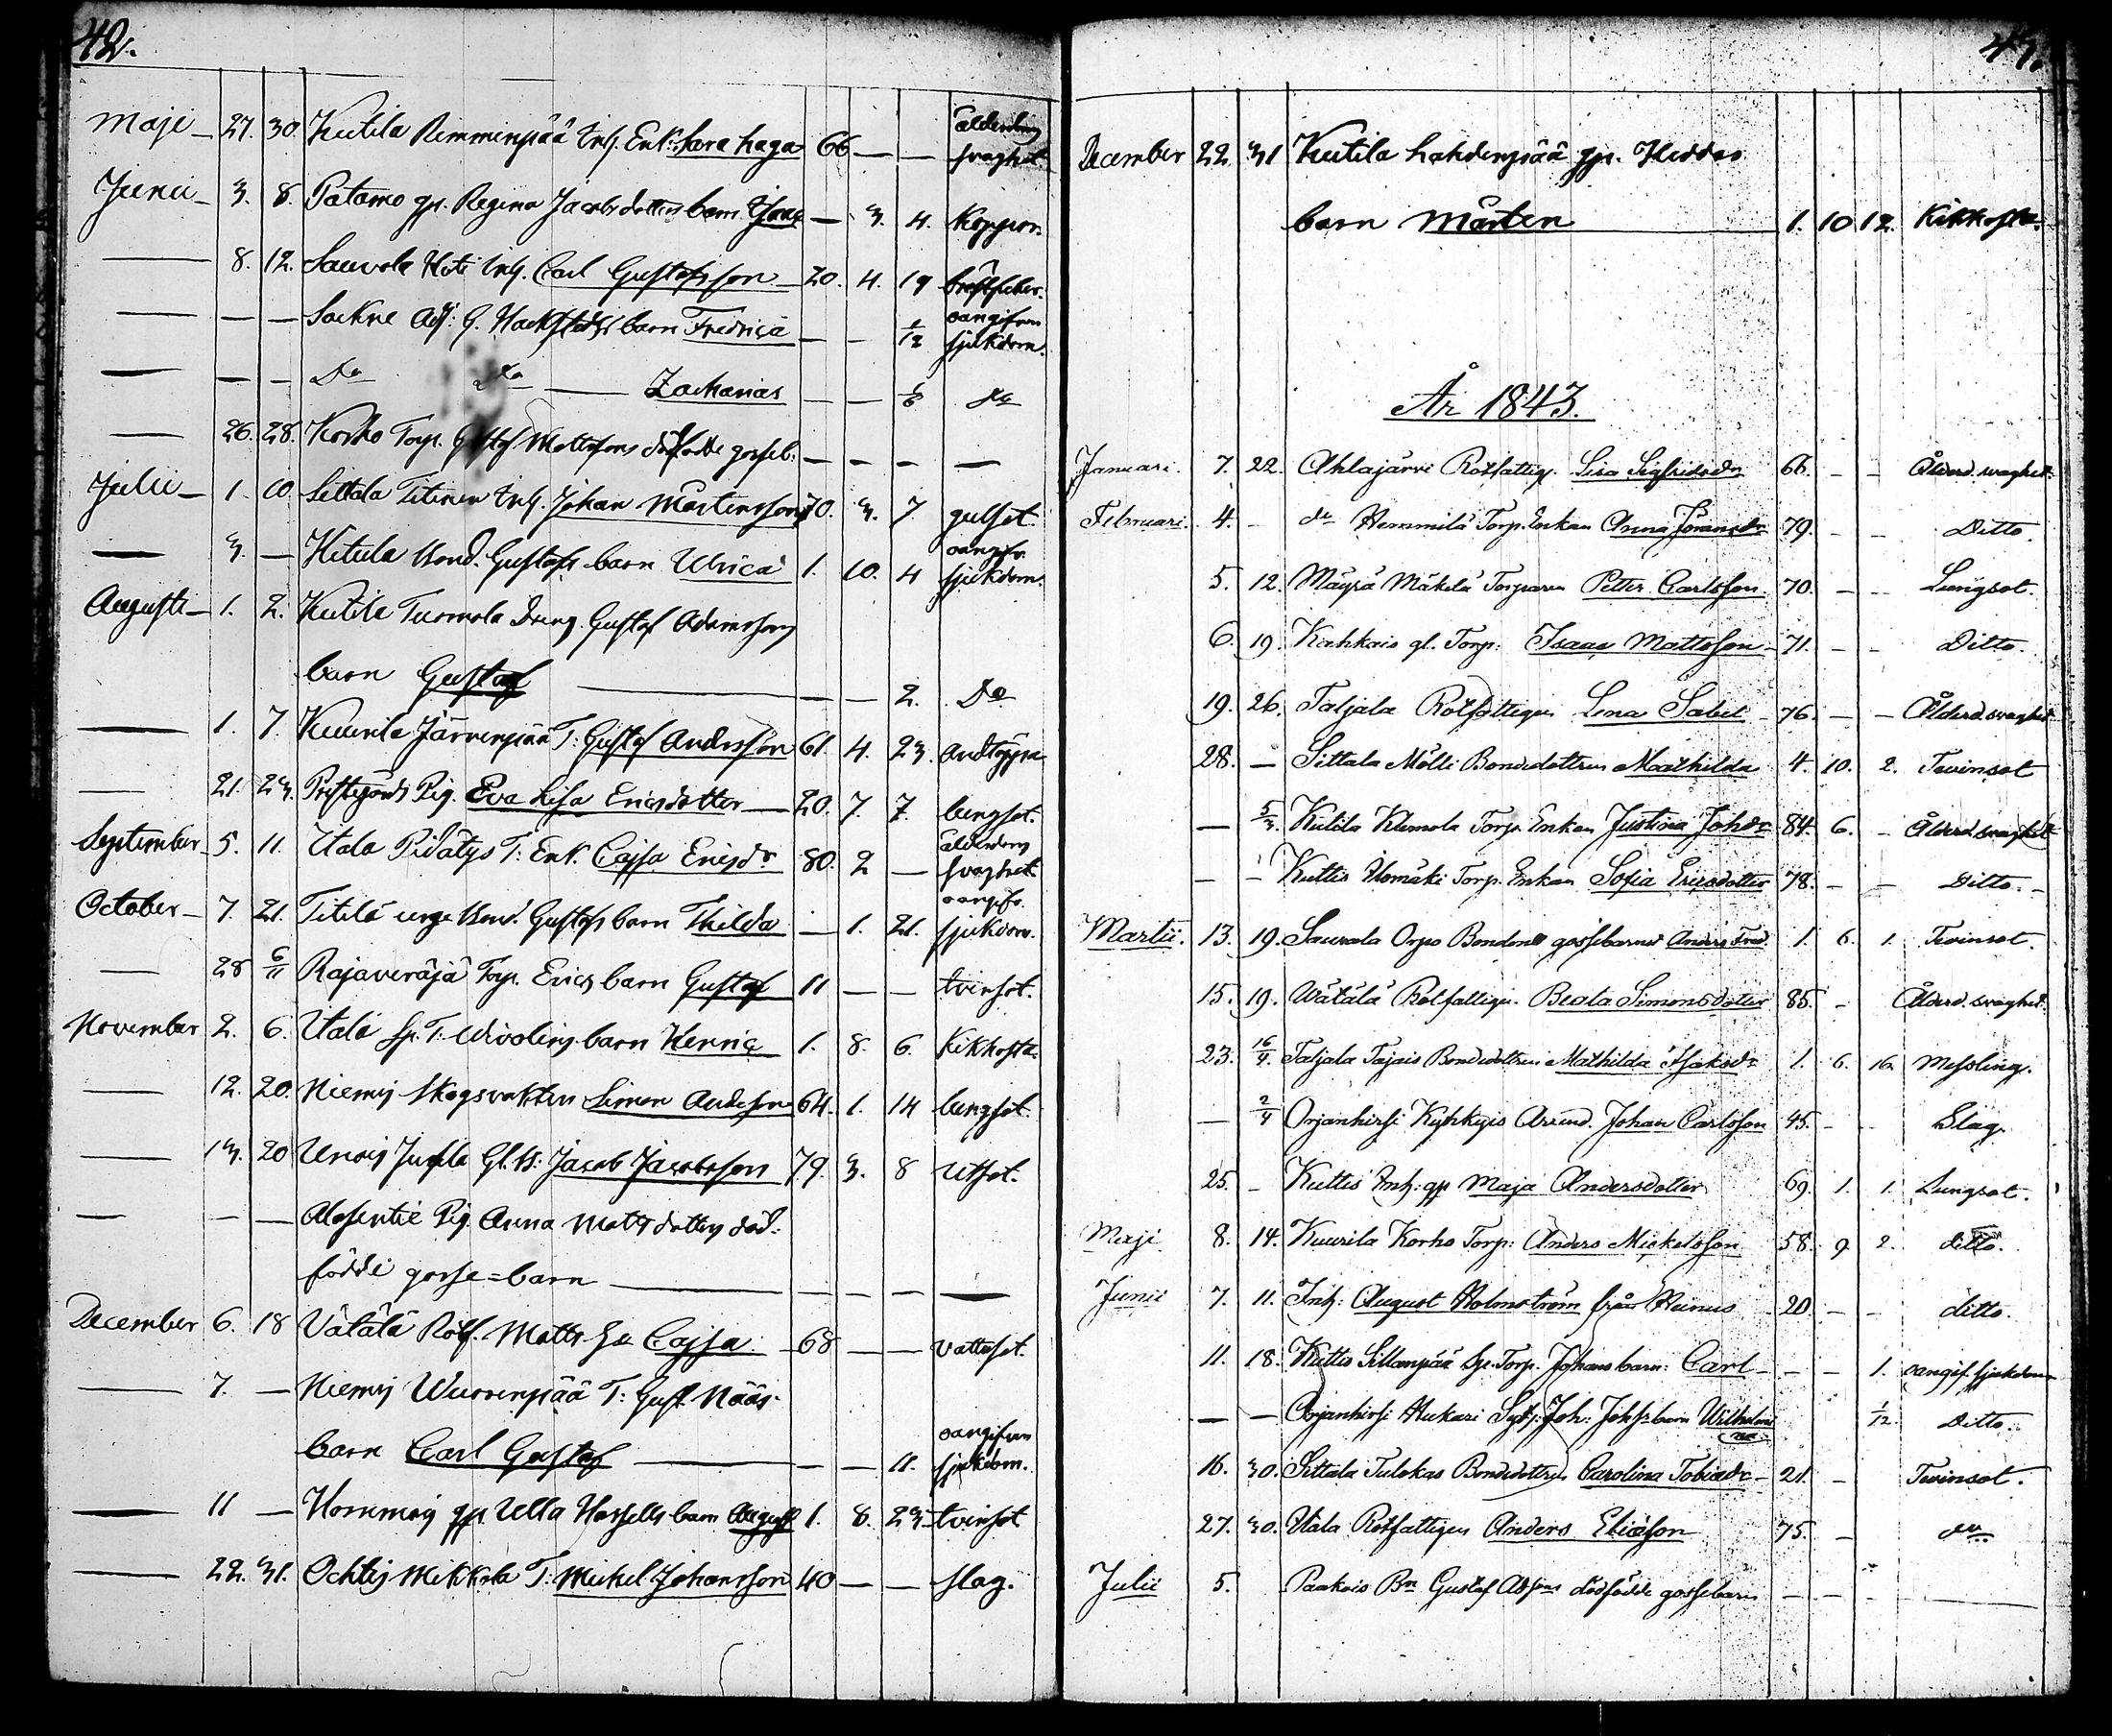 42.
Maji 27. 30. Kutila Rimminpää Inh. Enk: Sara Haga 66 — — ålderdoms svaghet
Junii 3. 8. Patamo gp. Regina Jacobsdotters barn — 3. 4. Koppor.
— 8. 12. Sauvola Inh. Carl Gustafsson 20. 4. 19
— — — Adj: G. Hackstedts barn Fredrica — — 1/12 oangifven sjukdom.
— — — Do Do — Zacharias — — 1/6 do
— 26. 28. Korko Torp. Gustaf Mattssons dödfödde gosseb. — — — —
Julii 1. 10 Sittala Titinen Inh. Johan Mårtensson 70. 3. 7. gulsot.
— 3. — Kitula Bond. Gustafs barn Ulrica 1. 10. 4 oangifv. sjukdom.
Augusti 1. 2. Kutila Tuomola Dreng. Gustaf Adamssons
barn Gustaf — — 2. Do
— 1. 7. Kuurila Järvenpää T: Gustaf Andersson 61. 4. 23. andtäppa
— 21. 23. Prestgårds Pig. Eva Lisa Ericsdotter — 20. 7. 7. lungsot.
September 5. 11. Utala Pidätys T: Enk. Cajsa Ericsdr 80. 2 — ålderdoms svaghet.
October 7. 21. Titilä unge Bond. Gustafs barn Thilda — 1. 21. oangifv. sjukdom.
— 28 6/11 Rajaveräjä Torp. Erics barn Gustaf 11 — — tvinsot.
November 2. 6. Utala Sp. T: barn Henric 1. 8. 6. Kikhosta.
— 12. 20. Niemis Skogsvaktaren Simon Andersson 64. 1. 14 lungsot.
— 13. 20 Jussila Gl. B: Jacob Jacobsson 79. 3. 8
— — — Pig. Anna Mattsdotters död-
födde gosse=barn — — — —
December 6. 18 Vätälä Rotf. Matts Cajsa 68 — — vattusot.
— 7. — Niemis Wuorenpää T: Gust. Nääs
barn Carl Gustaf — — 11. oangifven sjukdom.
— 11 — Hommais gp. Ulla Hassells barn August 1. 8. 23. tvinsot
— 22. 31. Ochtis Mikkola T: Michel Johansson 40 — — slag.
43.
December 22. 31 Kutila Lahdenpää gp. Heddas
barn Mårten 1. 10 12. Kikhosta.
År 1843.
Januari. 7. 22. Ahlajärvi Rotfattig. Lisa Sigfridsdr 66. — — Ålderd. svaghet.
Februari. 4. — do Hemmilä Torp. Enkan Anna Göransdr 79. — — Ditto.
5. 12. Mäyrä Mäkelä Torparen Petter Carlsson 70. — — Lungsot.
6. 19. Kahkais gl. Torp: Isaac Mattsson 71. — — Ditto.
19. 26. Taljala Rotfattigen Lena Sabel 76. — — Ålderd. svaghet
28. — Sittala Mölli Bondedottren Mathilda 4. 10. 2. Tvinsot
— 5/3. Kutila Klemola Torp. Enkan Justina Johsdr 84. 6. — Ålderd. svaghet
— — Kuttis Torp. Enkan Sofia Ericsdotter 78. — — Ditto.
Martii. 13. 19. Sauvala Orpo Bondens gossebarnet Anders Fred. 1. 6. 1. Tvinsot.
15. 19. Wätälä Rotfattigen Beata Simonsdotter 85. — Ålderd. svaghet.
23. 16/4. Taljala Tajais Bondedottren Mathilda Isaksdr 1. 6. 16. Messling.
— 2/4 Orjanhirsi Kyhkyis Johan Carlsson 45. — — Slag.
25. — Kuttis Inh: gp Maja Andersdotter 69. 1. 1. Lungsot.
Maji 8. 14. Kuurila Korho Torp: Anders Mickelsson 58. 9 2. ditto.
Junii 7. 11. Inh: August Holmström från Heinus 20. — — ditto.
11. 18. Kuttis Sillanpää Sp. Torp. Johans barn: Carl — — 1. oangif. sjukdom
— — Orjanhirsi Hukari Joh: Johss barn Wilhelmina 1/12. Ditto.
16. 30. Sittala Tulokas Bondedottren Carolina Tobiasdr 21. — Tvinsot.
27. 30. Utala Rotfattigen Anders Eliasson 75. — do
Julii 5. Paakais Bn Gustaf Adsons dödfödde gossebarn — — —